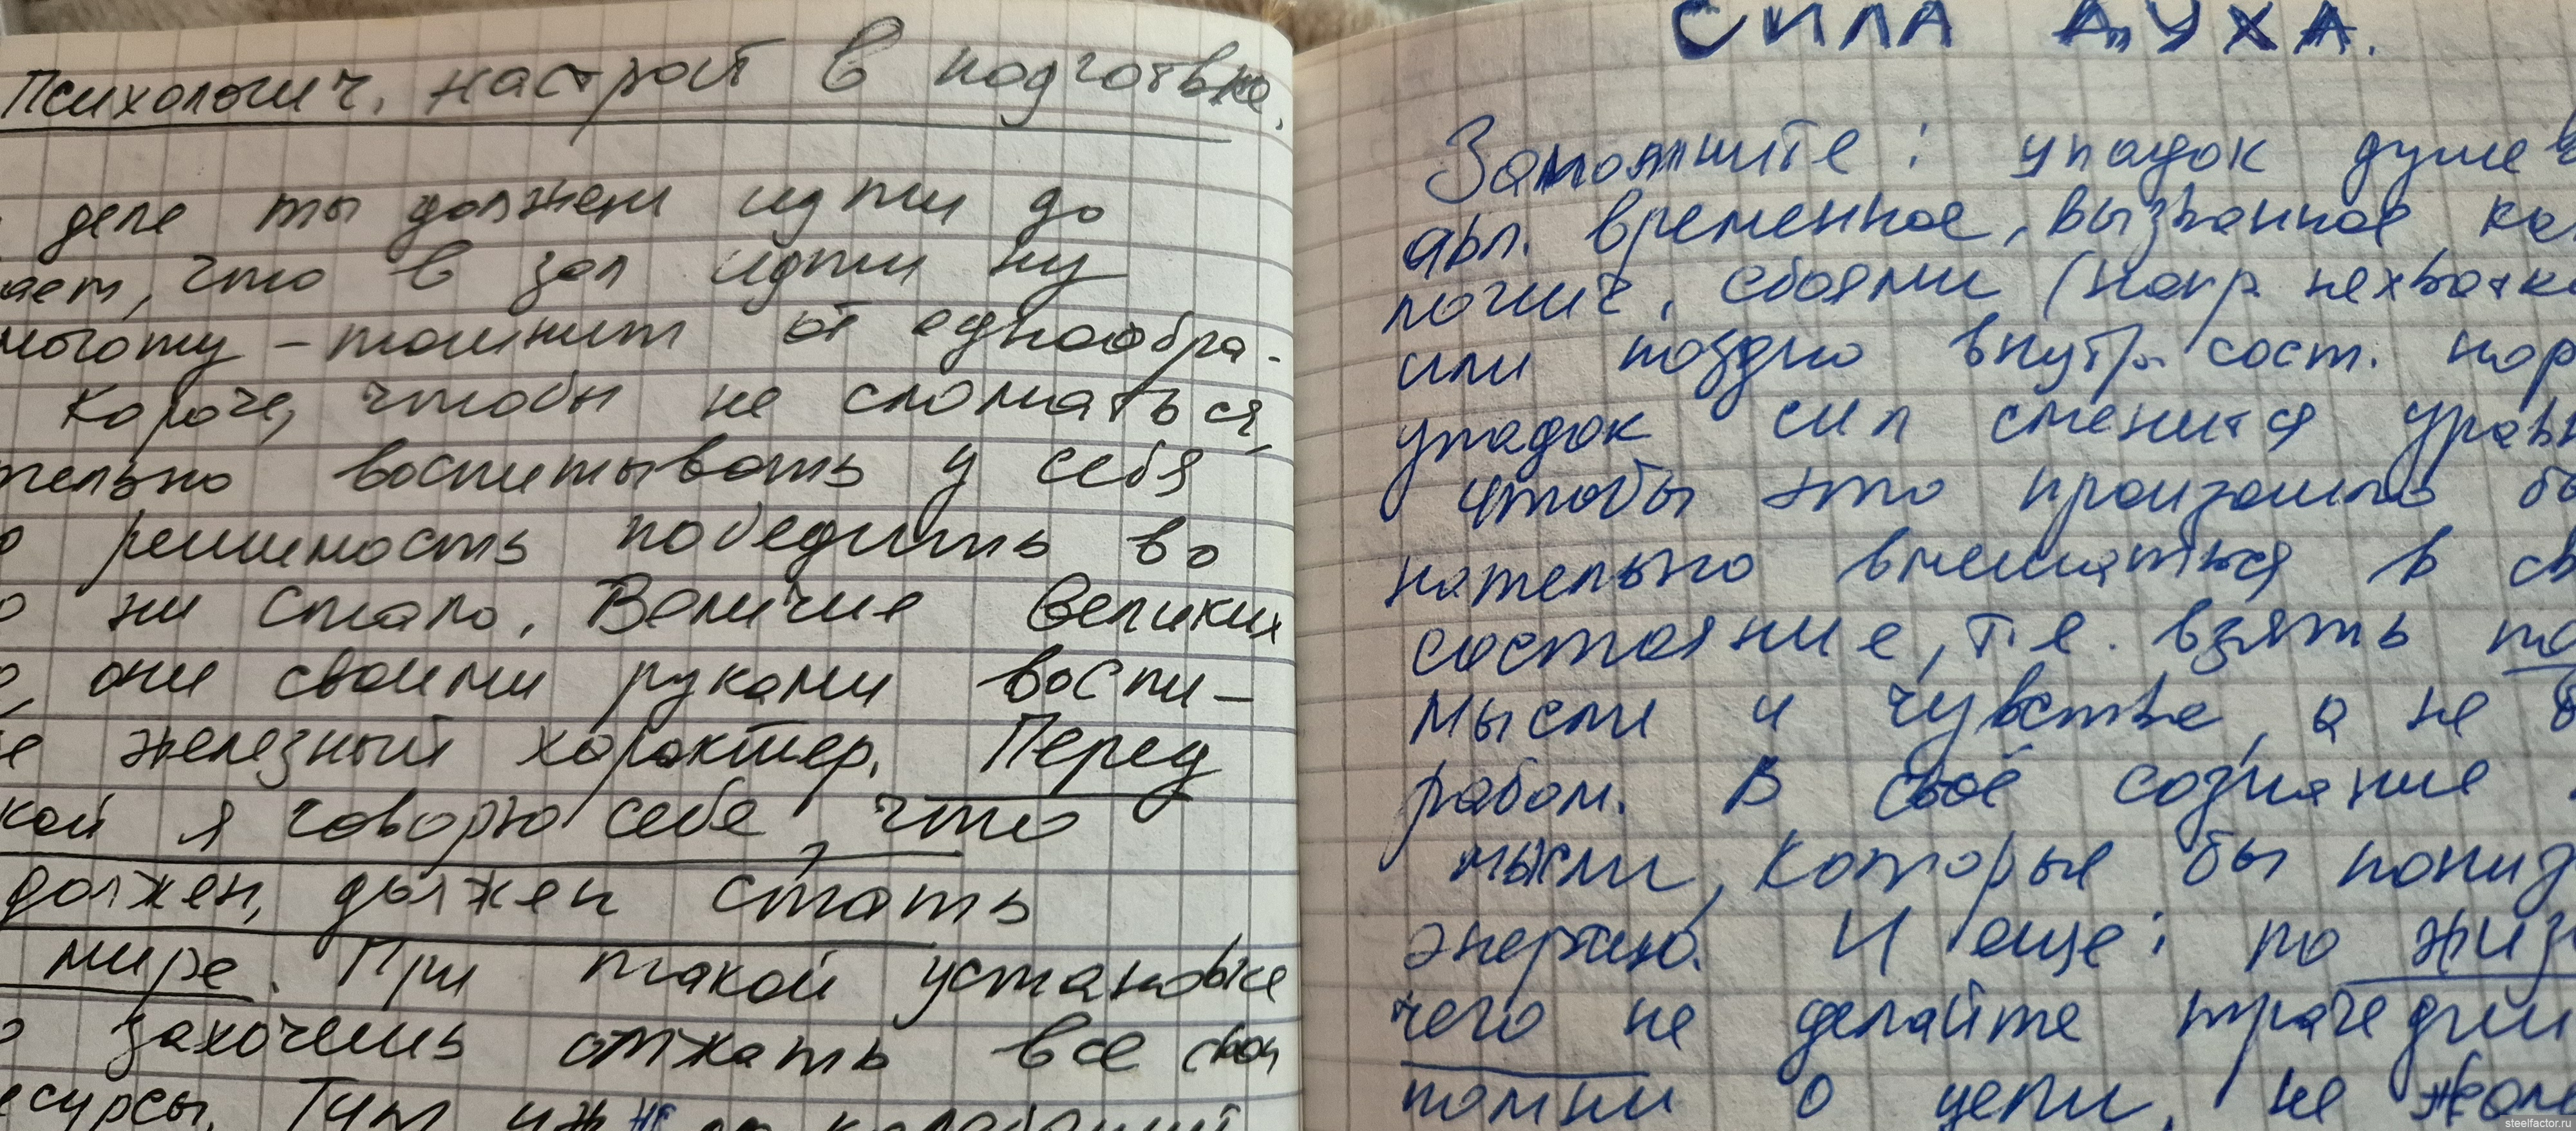 Психологич. настрой в подготовке.
деле ты должен идти до
ает, что в зал идти ну
моготу – тошнит от однообра-
Короче, чтобы не сломаться,
тельно воспитывать у себя
о решимость победить во
о ни стало. Величие великих
о, они своими руками воспи-
е железный характер. Перед
кой я говорю себе, что
должен, должен стать
мире. При такой установке
о захочешь отжать все свои
есурсы. Тут уж не до колебаний
СИЛА ДУХА.
Запомните: упадок душев
явл. временное, вызванное ка
логич. сбоями (напр. нехватка
или поздно внутр. сост. нор
упадок сил сменится уравн
чтобы это произошло бы
нательно вмешаться в св
состояние, т.е. взять по
мысли и чувства, а не б
рабом. В своё сознание
мысли, которые бы пониз
энергию. И еще: по жиз
чего не делайте трагедии
помни о цели, не жале
steelfactor.ru